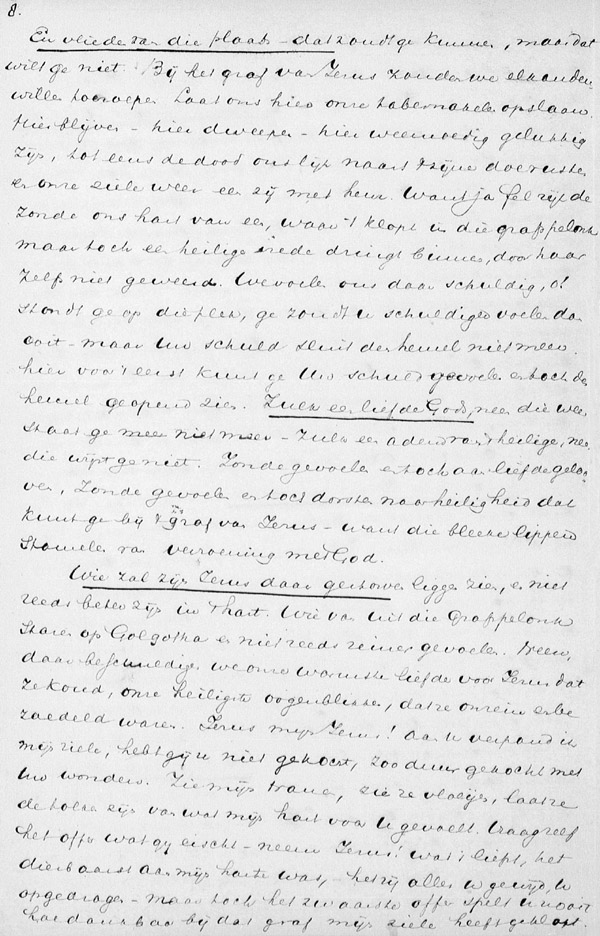 8.
En vliede van die plaats - dat zoudt ge kunnen, maar dat
wilt ge niet. Bij het graf van Jezus zouden we elkander
willen toeroepen Laat ons hier onze tabernakelen opslaan.
Hier blijven - hier dweepen - hier weemoedig gelukkig
zijn, tot eens de dood ons lijk naast 't zijne doe rusten
en onze ziele weer een zij met hem. Want ja fel rijt de
zonde ons hart van een, waar 't klopt in die grafspelonk
maar toch een heilige vrede dringt binnen, door haar
zelf niet geweerd. We voelen ons daar schuldig, o!
stondt ge op die plek, ge zoudt u schuldiger voelen dan
ooit - maar Uw schuld sluit den hemel niet meer.
hier voor 't eerst kunt ge Uw schuld gevoelen en toch den
hemel geopend zien. Zulk een liefde Gods, neen die weer
staat ge niet meer - Zulk een adem van 't heilige, neen
die wijt ge niet. Zonde gevoelen en toch aan liefde geloo
ven, Zonde gevoelen en toch dorsten naar heiligheid dat
kunt ge bij 't graf van Jezus - want die bleeke lippen
stamelen van verzoening met God.
Wie zal zijn Jezus daar gestorven liggen zien, en niet
reeds beter zijn in 't hart. Wie van uit die Grafspelonk
staren op Golgotha en niet reeds reiner gevoelen. Neen,
daar beschuldigen we onze warmste liefde voor Jezus dat
ze koud, onze heiligste oogenblikken, dat ze onrein en be
zoedeld waren. Jezus mijn Jezus! Aan U verpand ik
mijn ziele, hebt gij u niet gekocht, zoo duur gekocht met
Uw wonden. Zie mijn tranen, zie ze vloeijen, laat ze
de tolken zijn van wat mijn hart voor U gevoelt. Vraag zelf
het offer wat gij eischt - neem Jezus! wat 't liefst, het
dierbaarst aan mijn harte was, - het zij alles u gewijd, U
opgedragen - maar toch het zwaarste offer spelt U nooit
hoe dankbaar bij dat graf mijn ziele heeft geblost.